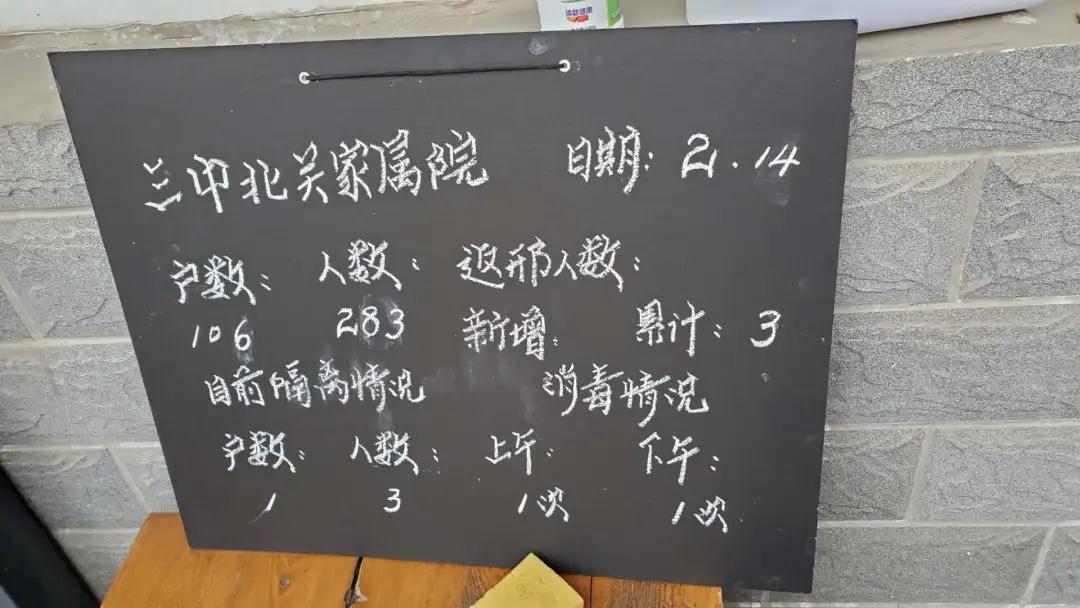 三中北关家属院 日期:2.14
户数: 人数: 返邢人数:
106 283 新增: 累计:3
目前隔离情况 消毒情况
户数: 人数: 上午: 下午:
1 3 1次 1次